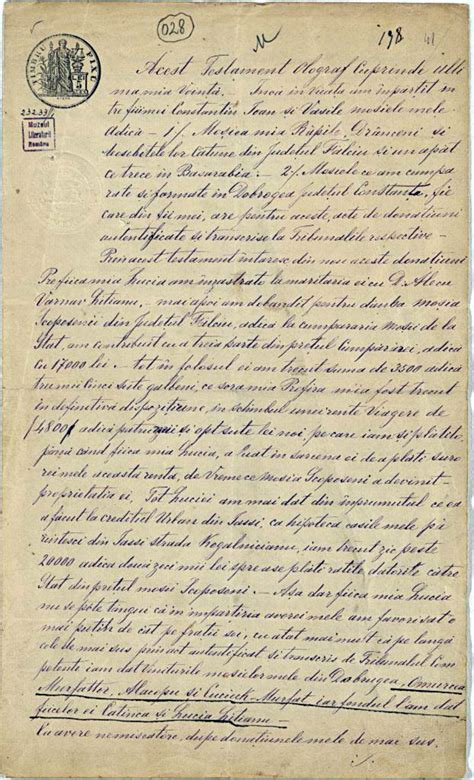 TIMBRU FIXU
028
M
198
41
232.331
Muzeul
Literaturii
Române
Acest Testament Olograf Cuprinde ulti
ma mia Vointă. — Incă in Viata am impartit in
tre fii mei Constantin, Ioan si Vasile mosiele mele
Adică — 1/. Mosiea mia Răpile, Drănceni si
cu Catune din Judetul Fălciu si un apiat
ce trece in Basarabia — 2/. Mosiele ce am cumpa
rate si formate in Dobrogea judetul Constanta, fie
care din fii mei, are pentru aceste, acte de donatiuni
autentificate si transcrise la Tribunalile respective —
Prin acest testament intaresc din nou aceste donatiuni
Pe fiica mia Lucia am inzestrato la maritatia ei cu D. Alecu
Varnav Liteanu, — mai apoi am debandit pentru dansa mosia
Scoposenii din Judetul Fălciu, adică la cumpararia mosiei de la
Stat, am contribuit cu a treia parte din pretul Cumpărărei, adică
cu 17000 lei. — tot in folosul ei am trecut suma de 3500 adică
trei mii Cinci sute galbeni, ce sora mia Profira mia fost trecut
in definitivă dispozitiune, in schimbul unei rente Viagere de
4800 adică patru mii si opt sute lei noi, pe care iam si platit o,
pănă când fiica mia Lucia, a luat in sarcina ei de a plati suro
rei mele aceasta renta, de Vreme ce mosia Scoposeni a devinit
proprietatia ei, Tot Luciei am mai dat din inprumutul ce ea
a făcut la creditul Urban din Iassi, ca hipoteca casile mele pă
rintesci din Iassi strada Kogalnicianu, iam trecut zic peste
20000 adică douăzeci mii lei spre a se plăti ratile datorite cătră
Stat din pretul mosiei Scoposeni. — Asa dar fiica mia Lucia
nu se pote tingui că in impartiria averei mele am favorisat o
mai putin de cat pe fratii sei, cu atat mai mult că pe langă
cele de mai sus prin act autentificat si transcris de Tribunalul Com
petente iam dat Viniturile mosielor mele din Dobrogea, Omurcea
Murfatlar, Alacapu si Murfat iar fondul l'am dat
fiicelor ei Catinca si Lucia Liteanu —
Ca avere nemiscatore, dupe donatiunele mele de mai sus.